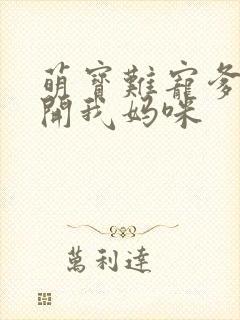 萌寶難寵爹
開我媽咪
萬利達